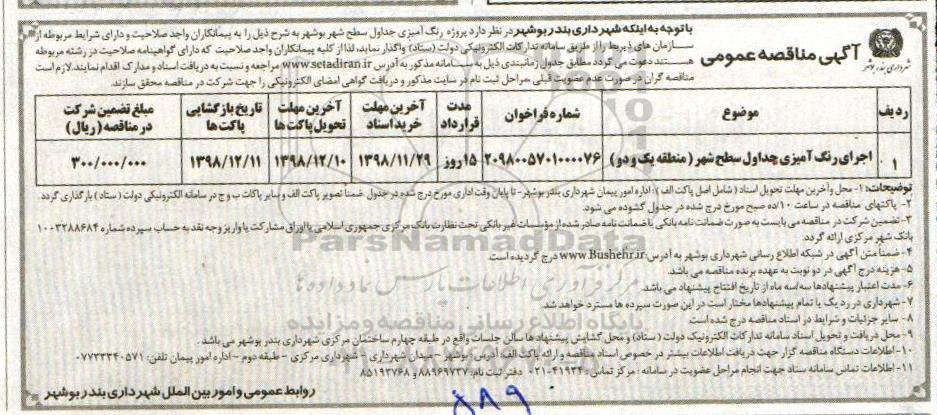 آگهی مناقصه عمومی
شهرداری بندر بوشهر
با توجه به اینکه شهرداری بندر بوشهر در نظر دارد پروژه رنگ آمیزی جداول سطح شهر بوشهر به شرح ذیل را به پیمانکاران واجد صلاحیت و دارای شرایط مربوطه از
سازمان های ذیربط را از طریق سامانه تدارکات الکترونیکی دولت (ستاد) واگذار نماید، لذا از کلیه پیمانکاران واجد صلاحیت که دارای گواهینامه صلاحیت در رشته مربوطه
هستند دعوت می گردد مطابق جدول زمانبندی ذیل به سامانه مذکور به آدرس www.setadiran.ir مراجعه و نسبت به دریافت اسناد و مدارک اقدام نمایند. لازم است
مناقصه گران در صورت عدم عضویت قبلی، مراحل ثبت نام در سایت مذکور و دریافت گواهی امضای الکترونیکی را جهت شرکت در مناقصه محقق سازند.
ردیف موضوع شماره فراخوان مدت قرارداد آخرین مهلت خرید اسناد آخرین مهلت تحویل پاکت ها تاریخ بازگشایی پاکت ها مبلغ تضمین شرکت در مناقصه (ریال)
۱ اجرای رنگ آمیزی جداول سطح شهر (منطقه یک و دو) ۲۰۹۸۰۰۵۷۰۱۰۰۰۰۷۶ ۱۵روز ۱۳۹۸/۱۱/۲۹ ۱۳۹۸/۱۲/۱۰ ۱۳۹۸/۱۲/۱۱ ۳۰۰/۰۰۰/۰۰۰
توضیحات: ۱- محل و آخرین مهلت تحویل اسناد (شامل اصل پاکت الف): اداره امور پیمان شهرداری بندر بوشهر- تا پایان وقت اداری مورخ درج شده در جدول. ضمنا تصویر پاکت الف و سایر پاکات ب و ج در سامانه الکترونیکی دولت (ستاد) بارگذاری گردد.
۲- پاکتهای مناقصه در ساعت ۱۰/ده صبح مورخ درج شده در جدول گشوده می شود.
۳- تضمین شرکت در مناقصه می بایست به صورت ضمانت نامه بانکی یا ضمانت نامه صادر شده از مؤسسات غیر بانکی تحت نظارت بانک مرکزی جمهوری اسلامی یا اوراق مشارکت یا واریز وجه نقد به حساب سپرده شماره ۱۰۰۳۲۸۸۶۸۴
بانک شهر مرکزی ارائه گردد.
۴- ضمناً متن آگهی در شبکه اطلاع رسانی شهرداری بوشهر به آدرس: www.Bushehr.ir درج گردیده است.
۵- هزینه درج آگهی در دو نوبت به عهده برنده مناقصه می باشد.
۶- مدت اعتبار پیشنهادها سه/سه ماه از تاریخ افتتاح پیشنهاد می باشد.
۷- شهرداری در رد یک یا تمام پیشنهادها مختار است در این صورت سپرده ها مسترد خواهد شد.
۸- سایر جزئیات و شرایط در اسناد مناقصه درج شده است.
۹- محل دریافت و تحویل اسناد سامانه تدارکات الکترونیک دولت (ستاد) و محل گشایش پیشنهادها سالن جلسات واقع در طبقه چهارم ساختمان مرکزی شهرداری بندر بوشهر می باشد.
۱۰- اطلاعات دستگاه مناقصه گزار جهت دریافت اطلاعات بیشتر در خصوص اسناد مناقصه و ارائه پاکت الف: آدرس: بوشهر - میدان شهرداری - شهرداری مرکزی - طبقه دوم - اداره امور پیمان تلفن: ۰۷۷۳۳۳۴۰۵۷۱
۱۱- اطلاعات تماس سامانه ستاد جهت انجام مراحل عضویت در سامانه: مرکز تماس: ۴۱۹۳۴-۰۲۱ دفتر ثبت نام: ۸۸۹۶۹۷۳۷ و ۸۵۱۹۳۷۶۸
روابط عمومی و امور بین الملل شهرداری بندر بوشهر
ParsNamadData
مرکز فرآوری اطلاعات پارس نماد داده ها
پایگاه اطلاع رسانی مناقصه و مزایده